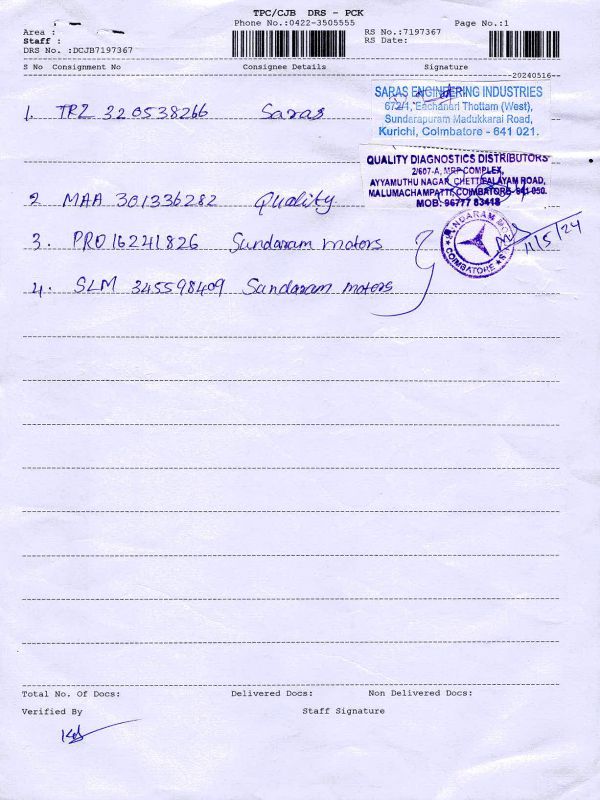 TPC/CJB DRS - PCK
Phone No.:0422-3505555 Page No.:1
Area : RS No.:7197367
Staff : RS Date:
DRS No. :DCJB7197367
S No Consignment No Consignee Details Signature
--20240516--
1. TRZ 320538266 Saras
SARAS ENGINEERING INDUSTRIES
672/1, Eachanari Thottam (West),
Sundarapuram Madukkarai Road,
Kurichi, Coimbatore - 641 021.
QUALITY DIAGNOSTICS DISTRIBUTORS
2/607-A, MRP COMPLEX,
AYYAMUTHU NAGAR, CHETTIPALAYAM ROAD,
MALUMACHAMPATTI, COIMBATORE- 641 050.
MOB: 96777 83418
2 MAA 301336282 Quality
3. PRO 16241826 Sundaram motors
SUNDARAM
COIMBATORE
11/5/24
4. SLM 345598409 Sundaram motors
Total No. Of Docs: Delivered Docs: Non Delivered Docs:
Verified By Staff Signature